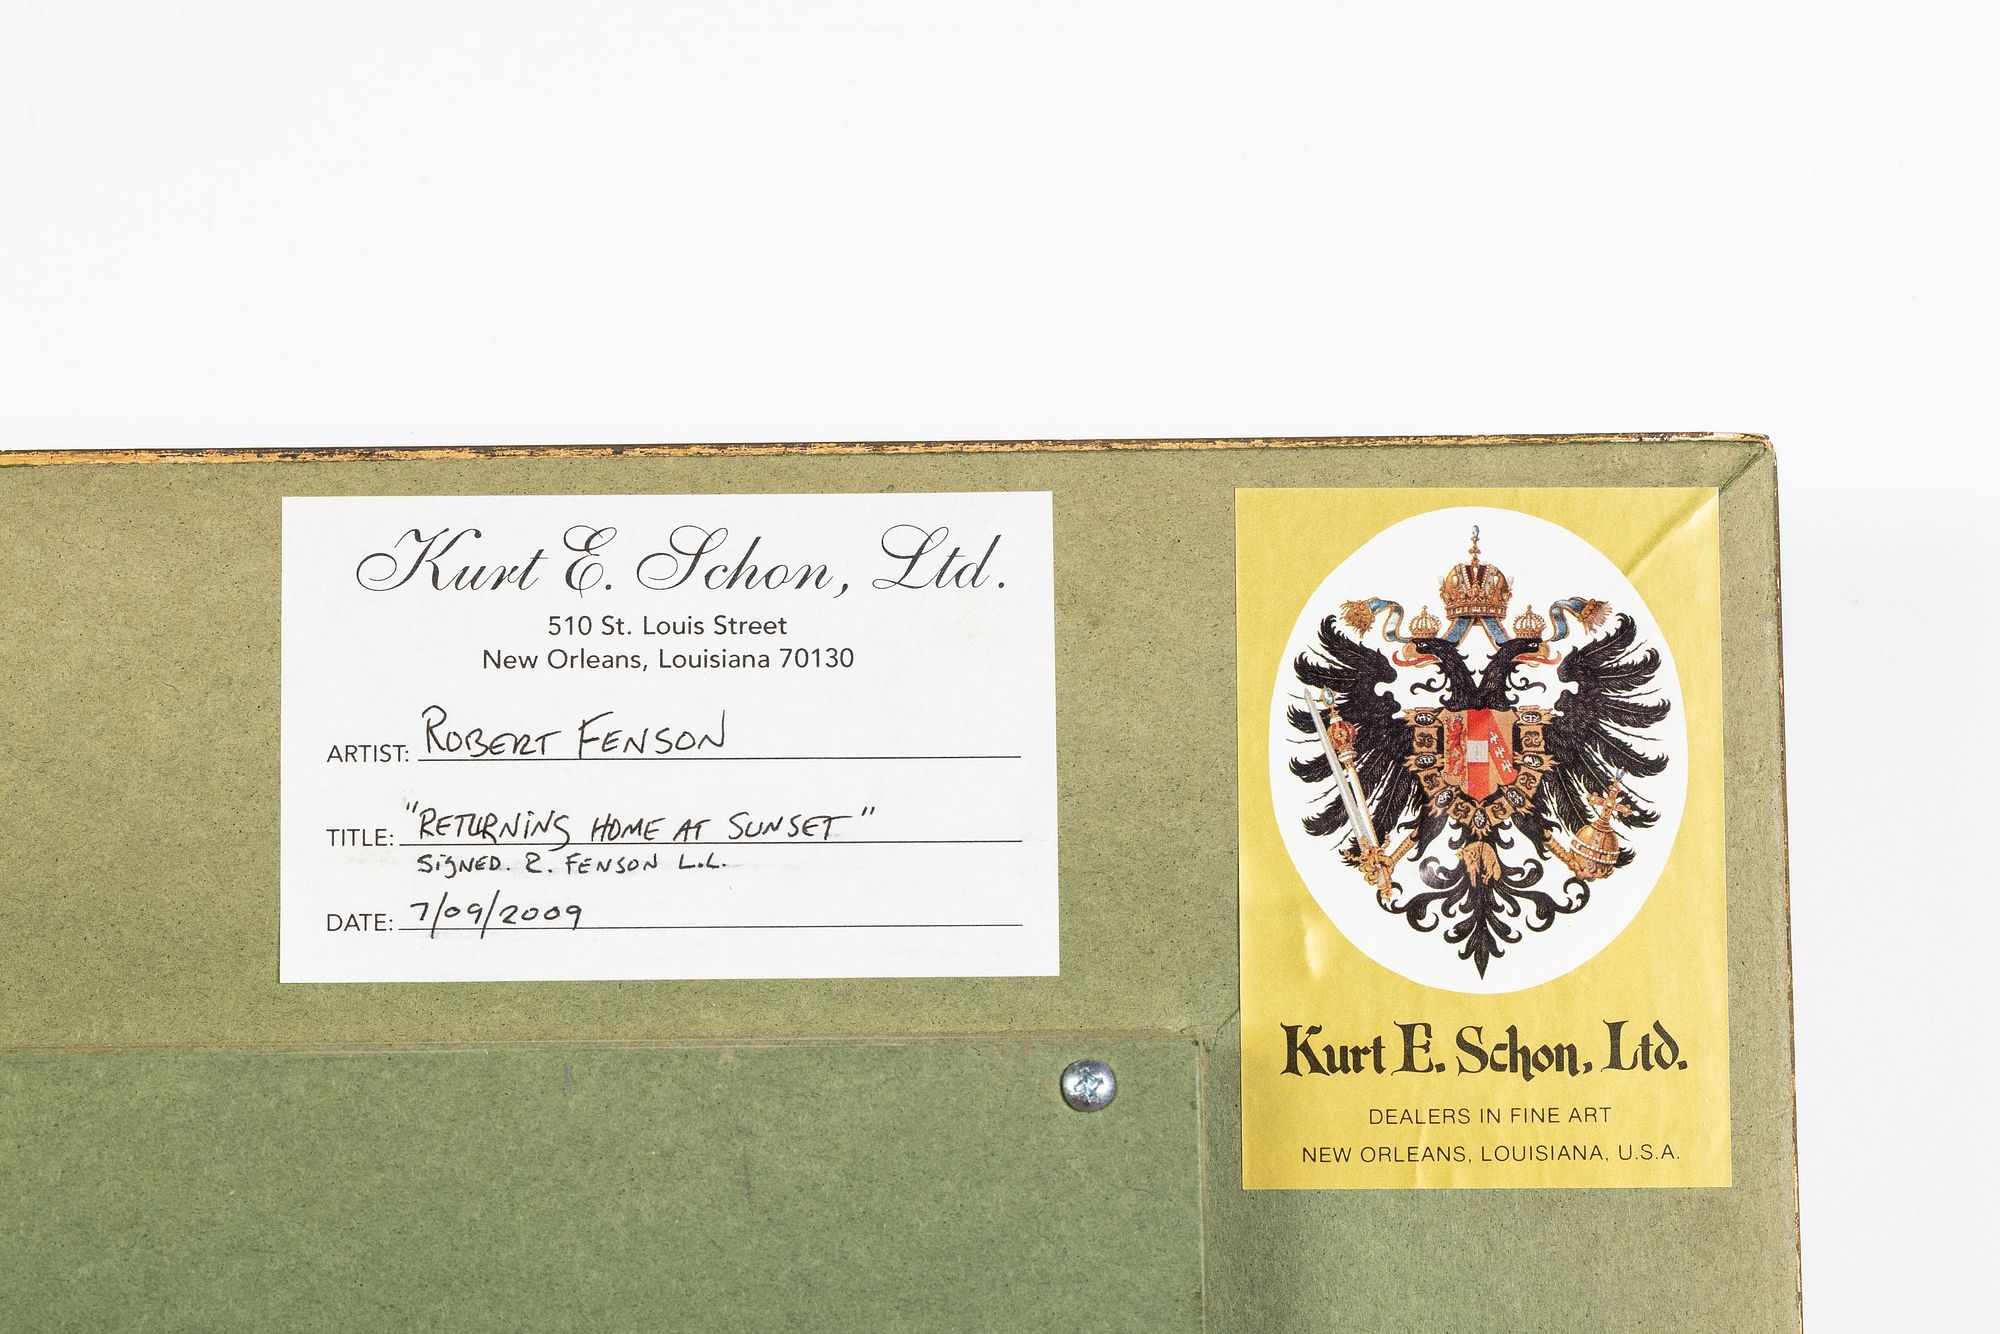 Kurt E. Schon, Ltd.
510 St. Louis Street
New Orleans, Louisiana 70130
ARTIST: ROBERT FENSON
TITLE: "RETURNING HOME AT SUNSET"
SIGNED. R. FENSON L.L.
DATE: 7/09/2009
Kurt E. Schon, Ltd.
DEALERS IN FINE ART
NEW ORLEANS, LOUISIANA, U.S.A.